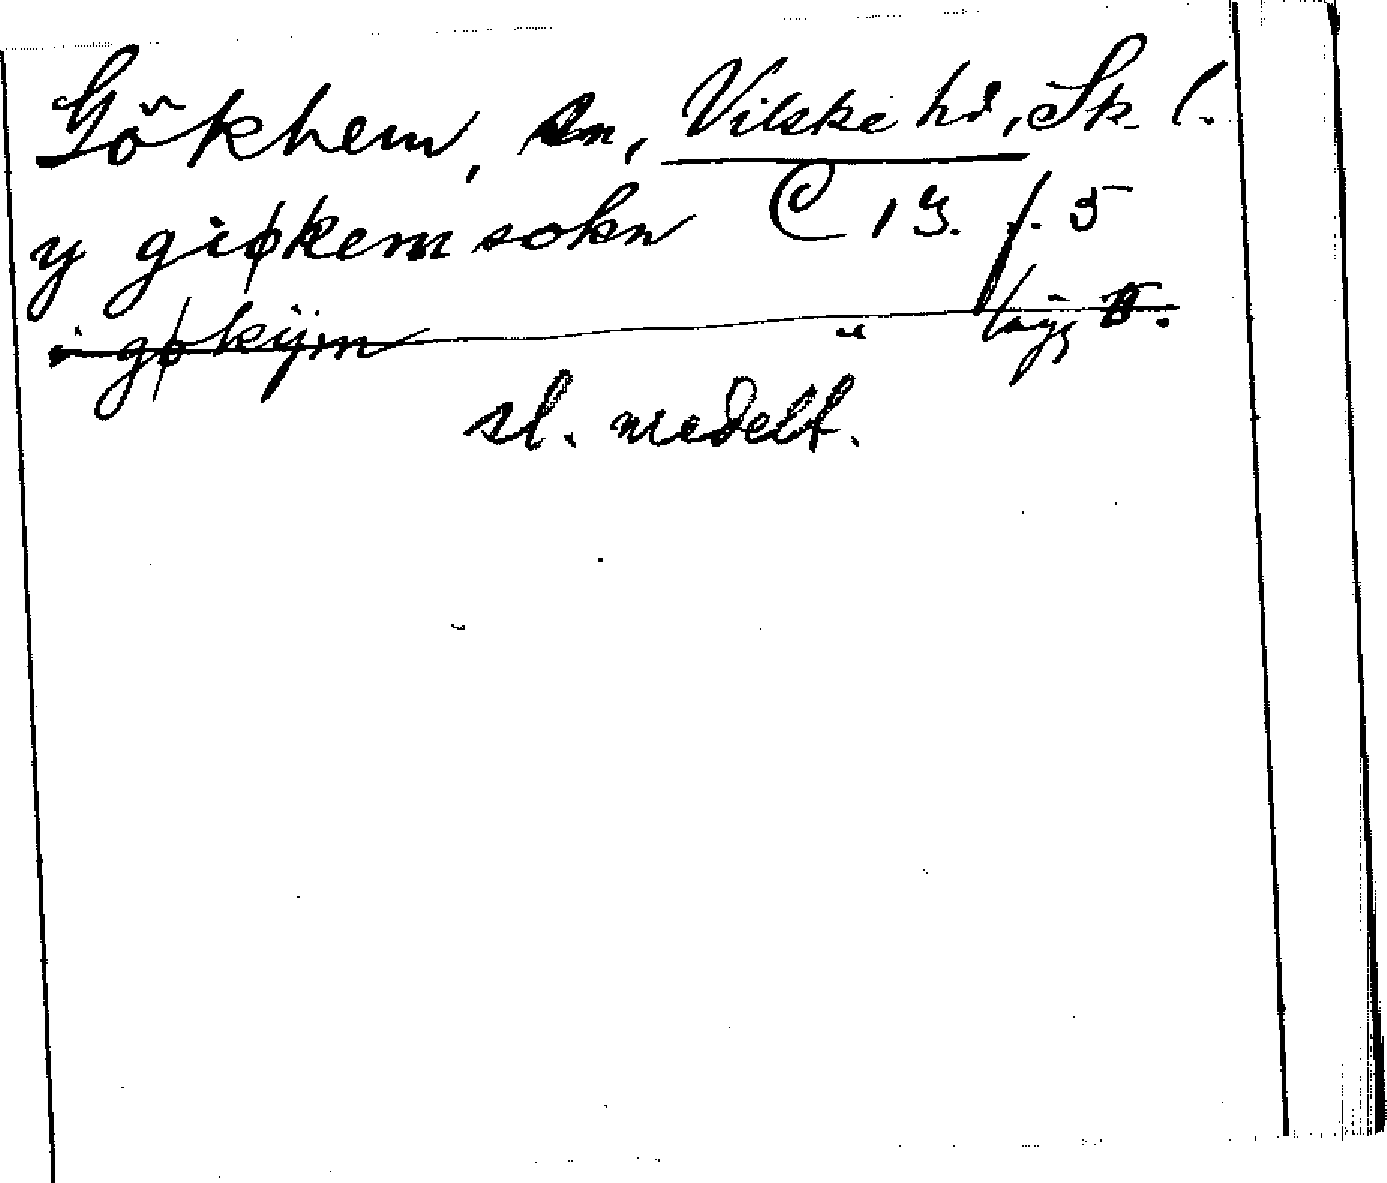 Gökhem, sn, Vilske hd, Sk l.
y giøkem sokn C 13. f. 5
i gøkijm " lägg 5.
sl. medelt.